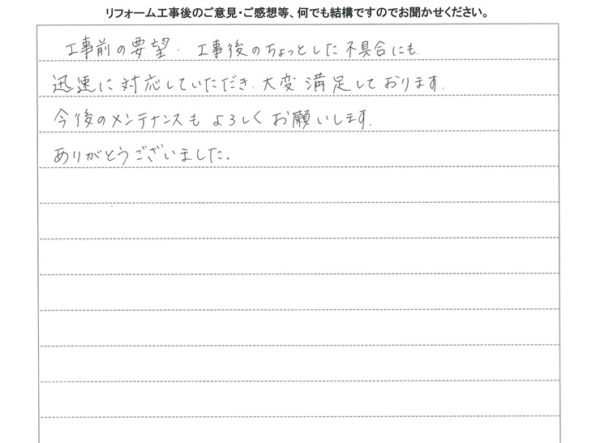 リフォーム工事後のご意見・ご感想等、何でも結構ですのでお聞かせください。
工事前の要望、工事後のちょっとした不具合にも
迅速に対応していただき、大変満足しております。
今後のメンテナンスもよろしくお願いします。
ありがとうございました。